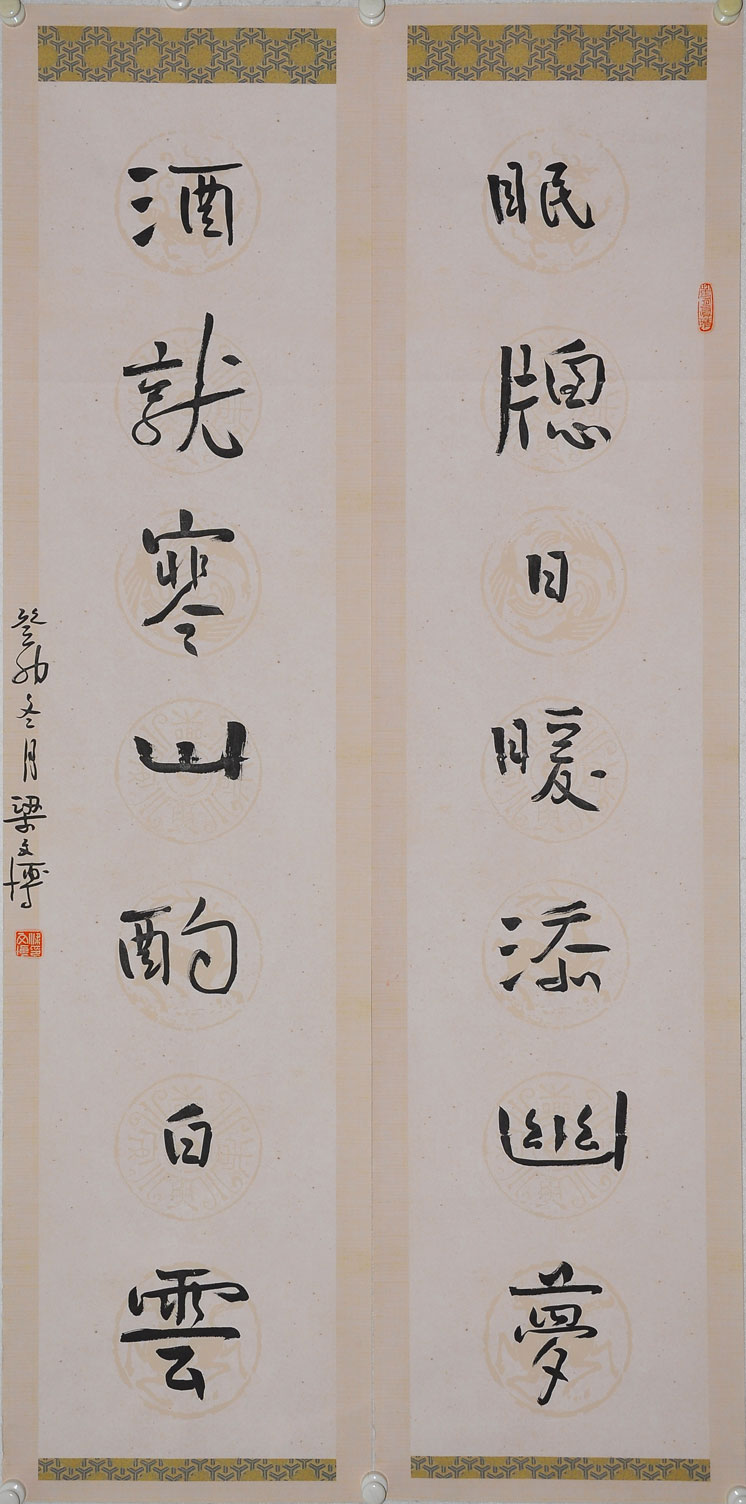 眠牕日暖添幽夢
酒就寒山酌白雲
癸卯冬月梁文博